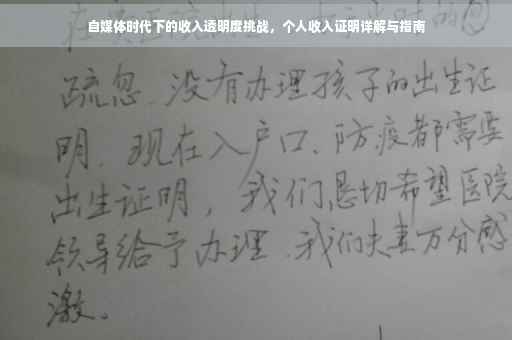 自媒体时代下的收入透明度挑战，个人收入证明详解与指南
疏忽、没有办理孩子的出生证
明、现在入户口、防疫都需要
出生证明，我们恳切希望医院
领导给予办理、我们夫妻万分感
激。